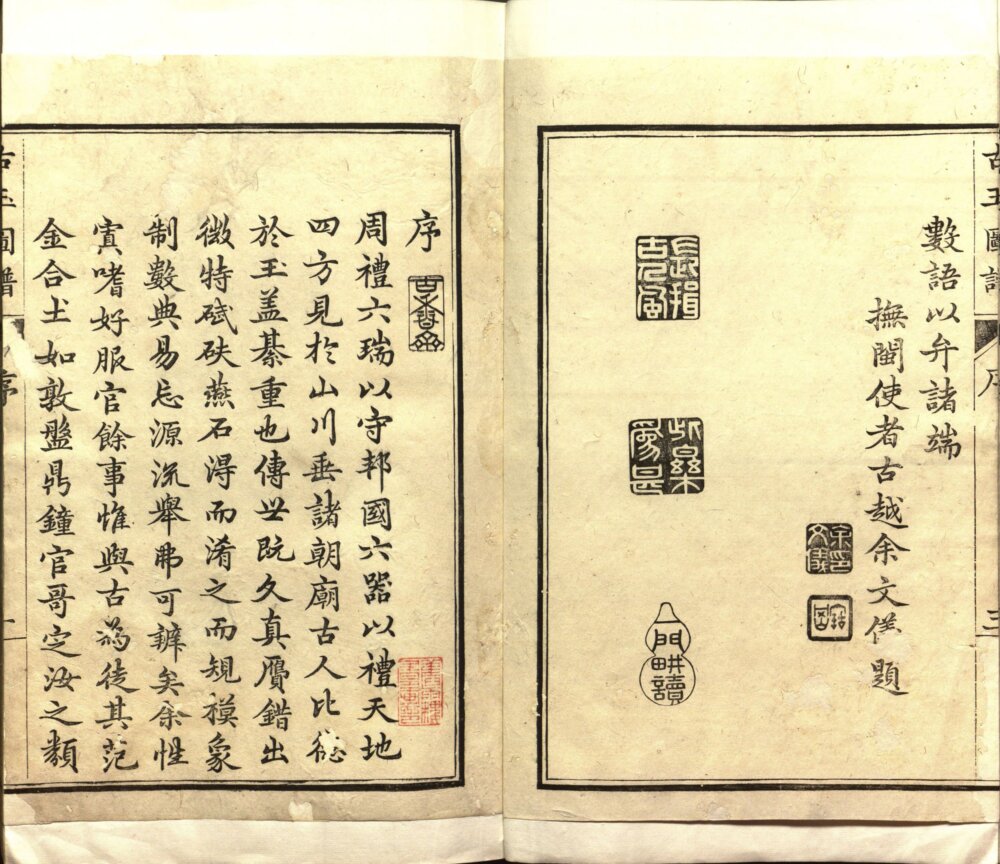 古玉圖譜 序 三
數語以弁諸端
撫閩使者古越余文儀題
余印文儀
序
周禮六瑞以守邦國六器以禮天地
四方見於山川垂諸朝廟古人比德
於玉盖綦重也傳世既久真贗錯出
微特碔砆燕石淂而淆之而規模象
制數典易忘源流舉弗可辨矣余性
寡嗜好服官餘事惟與古為徒其范
金合土如敦盤鼎鐘官哥定汝之類
古玉圖譜 序 一